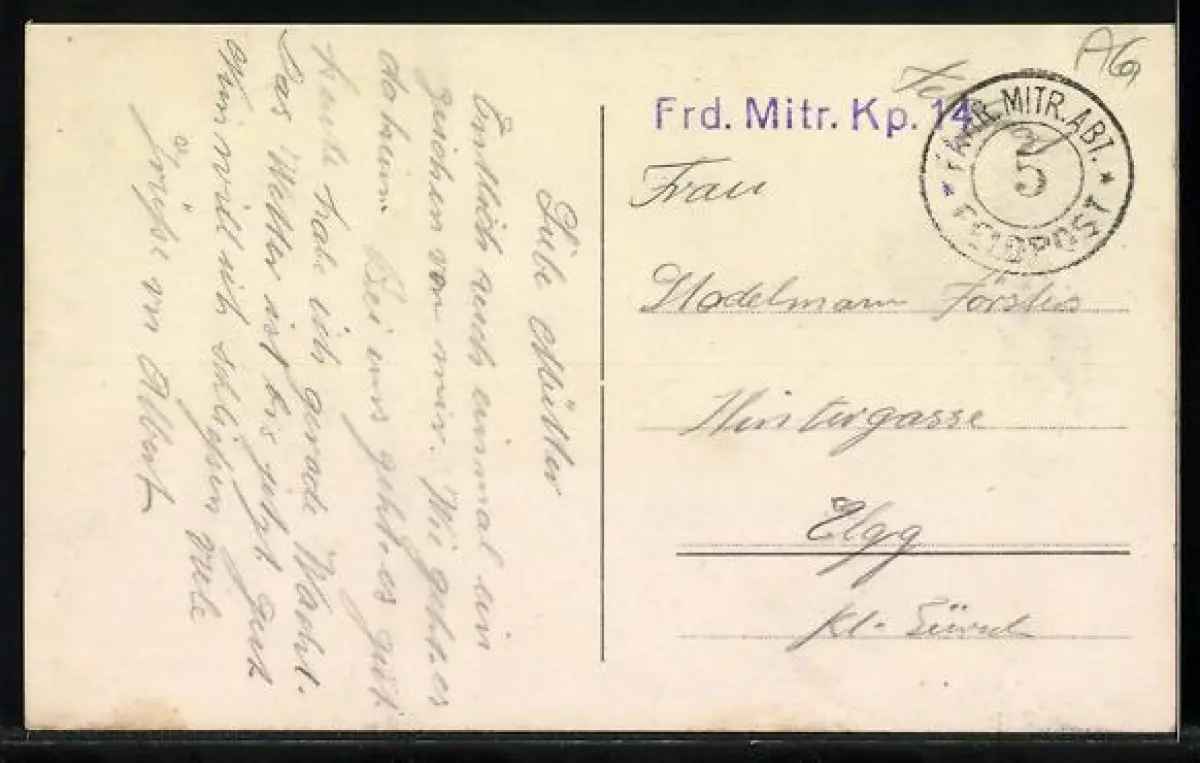 Liebe Mutter
Endlich auch einmal ein
zeichen von mir. Wie geht es
daheim. Bei uns geht es gut.
heute habe ich gerade Wacht.
Das Wetter ist bis jetzt gut
Nun will ich schliessen viele
Grüsse von Albert
A6
Frd. Mitr. Kp. 14
FAHR. MITR. ABT.
5
FELDPOST
Frau
Hintergasse
Elgg
Kt. Zürich